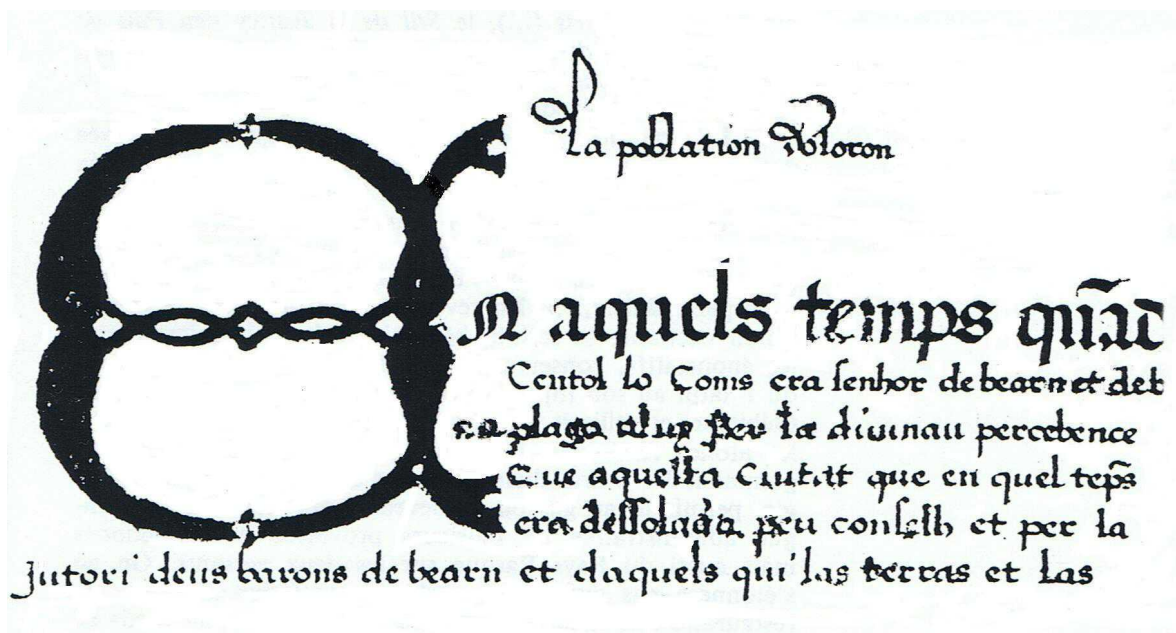 La poblation Doloron
En aquels temps quãt
Centol lo Coms era senhor de bearn et deb
plago a luy Per la diuinau percebence
Que aquesta Ciutat que en quel tẽps
era dessolada peu conselh et per la
Jutori deus barons de bearn et daquels qui las terras et las